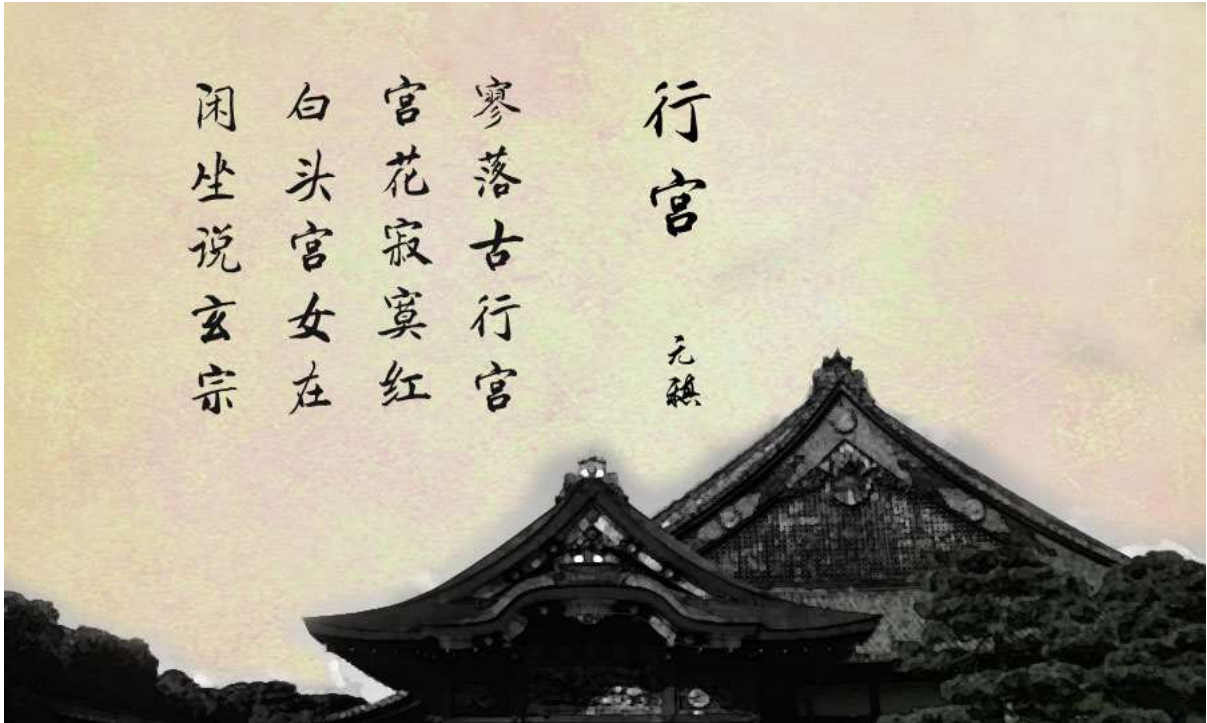 行宫
元稹
寥落古行宫
宫花寂寞红
白头宫女在
闲坐说玄宗